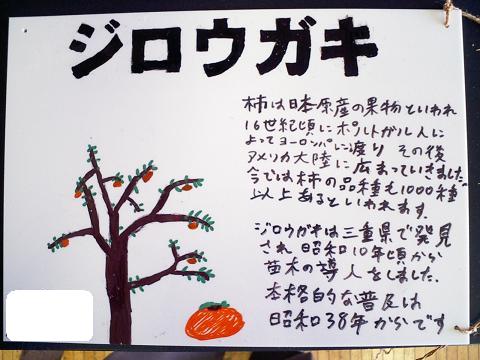 ジロウガキ
柿は日本原産の果物といわれ
16世紀頃にポルトガル人に
よってヨーロッパに渡り その後
アメリカ大陸に広まっていきました。
今では柿の品種も1000種
以上あるといわれます。
ジロウガキは三重県で発見
され 昭和10年頃から
苗木の導入をしました。
本格的な普及は
昭和38年からです